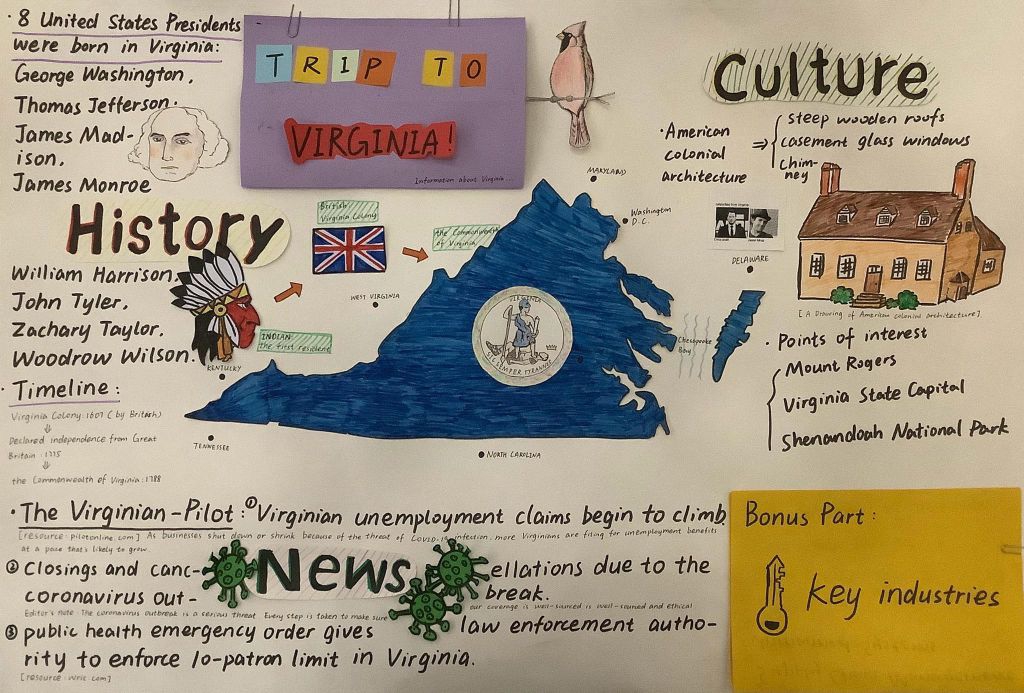 · 8 United States Presidents
were born in Virginia:
George Washington,
Thomas Jefferson,
James Mad-
ison,
James Monroe
History
William Harrison,
John Tyler,
Zachary Taylor,
Woodrow Wilson.
· Timeline:
Virginia Colony: 1607 (by British)
Declared independence from Great
Britain: 1775
the Commonwealth of Virginia: 1788
TRIP TO
VIRGINIA!
Information about Virginia...
British
Virginia Colony
the Commonwealth
of Virginia
INDIAN:
the first resident
WEST VIRGINIA
KENTUCKY
TENNESSEE
NORTH CAROLINA
MARYLAND
Washington
D.C.
DELAWARE
Chesapeake
Bay
VIRGINIA
SIC SEMPER TYRANNIS
Culture
· American
colonial
architecture
⇒
steep wooden roofs
casement glass windows
chim-
ney
[A Drawing of American colonial architecture]
· Points of interest
Mount Rogers
Virginia State Capital
Shenandoah National Park
· The Virginian-Pilot: ① Virginian unemployment claims begin to climb
[resource: pilotonline.com] As businesses shut down or shrink because of the threat of COVID-19 infection, more Virginians are filing for unemployment benefits
at a pace that's likely to grow.
News
② closings and canc-
ellations due to the
coronavirus out-
break.
Editor's note: The coronavirus outbreak is a serious threat. Every step is taken to make sure
our coverage is well-sourced is well-sourced and ethical
③ public health emergency order gives
law enforcement autho-
rity to enforce 10-patron limit in Virginia.
[resource: wric.com]
Bonus Part:
key industries